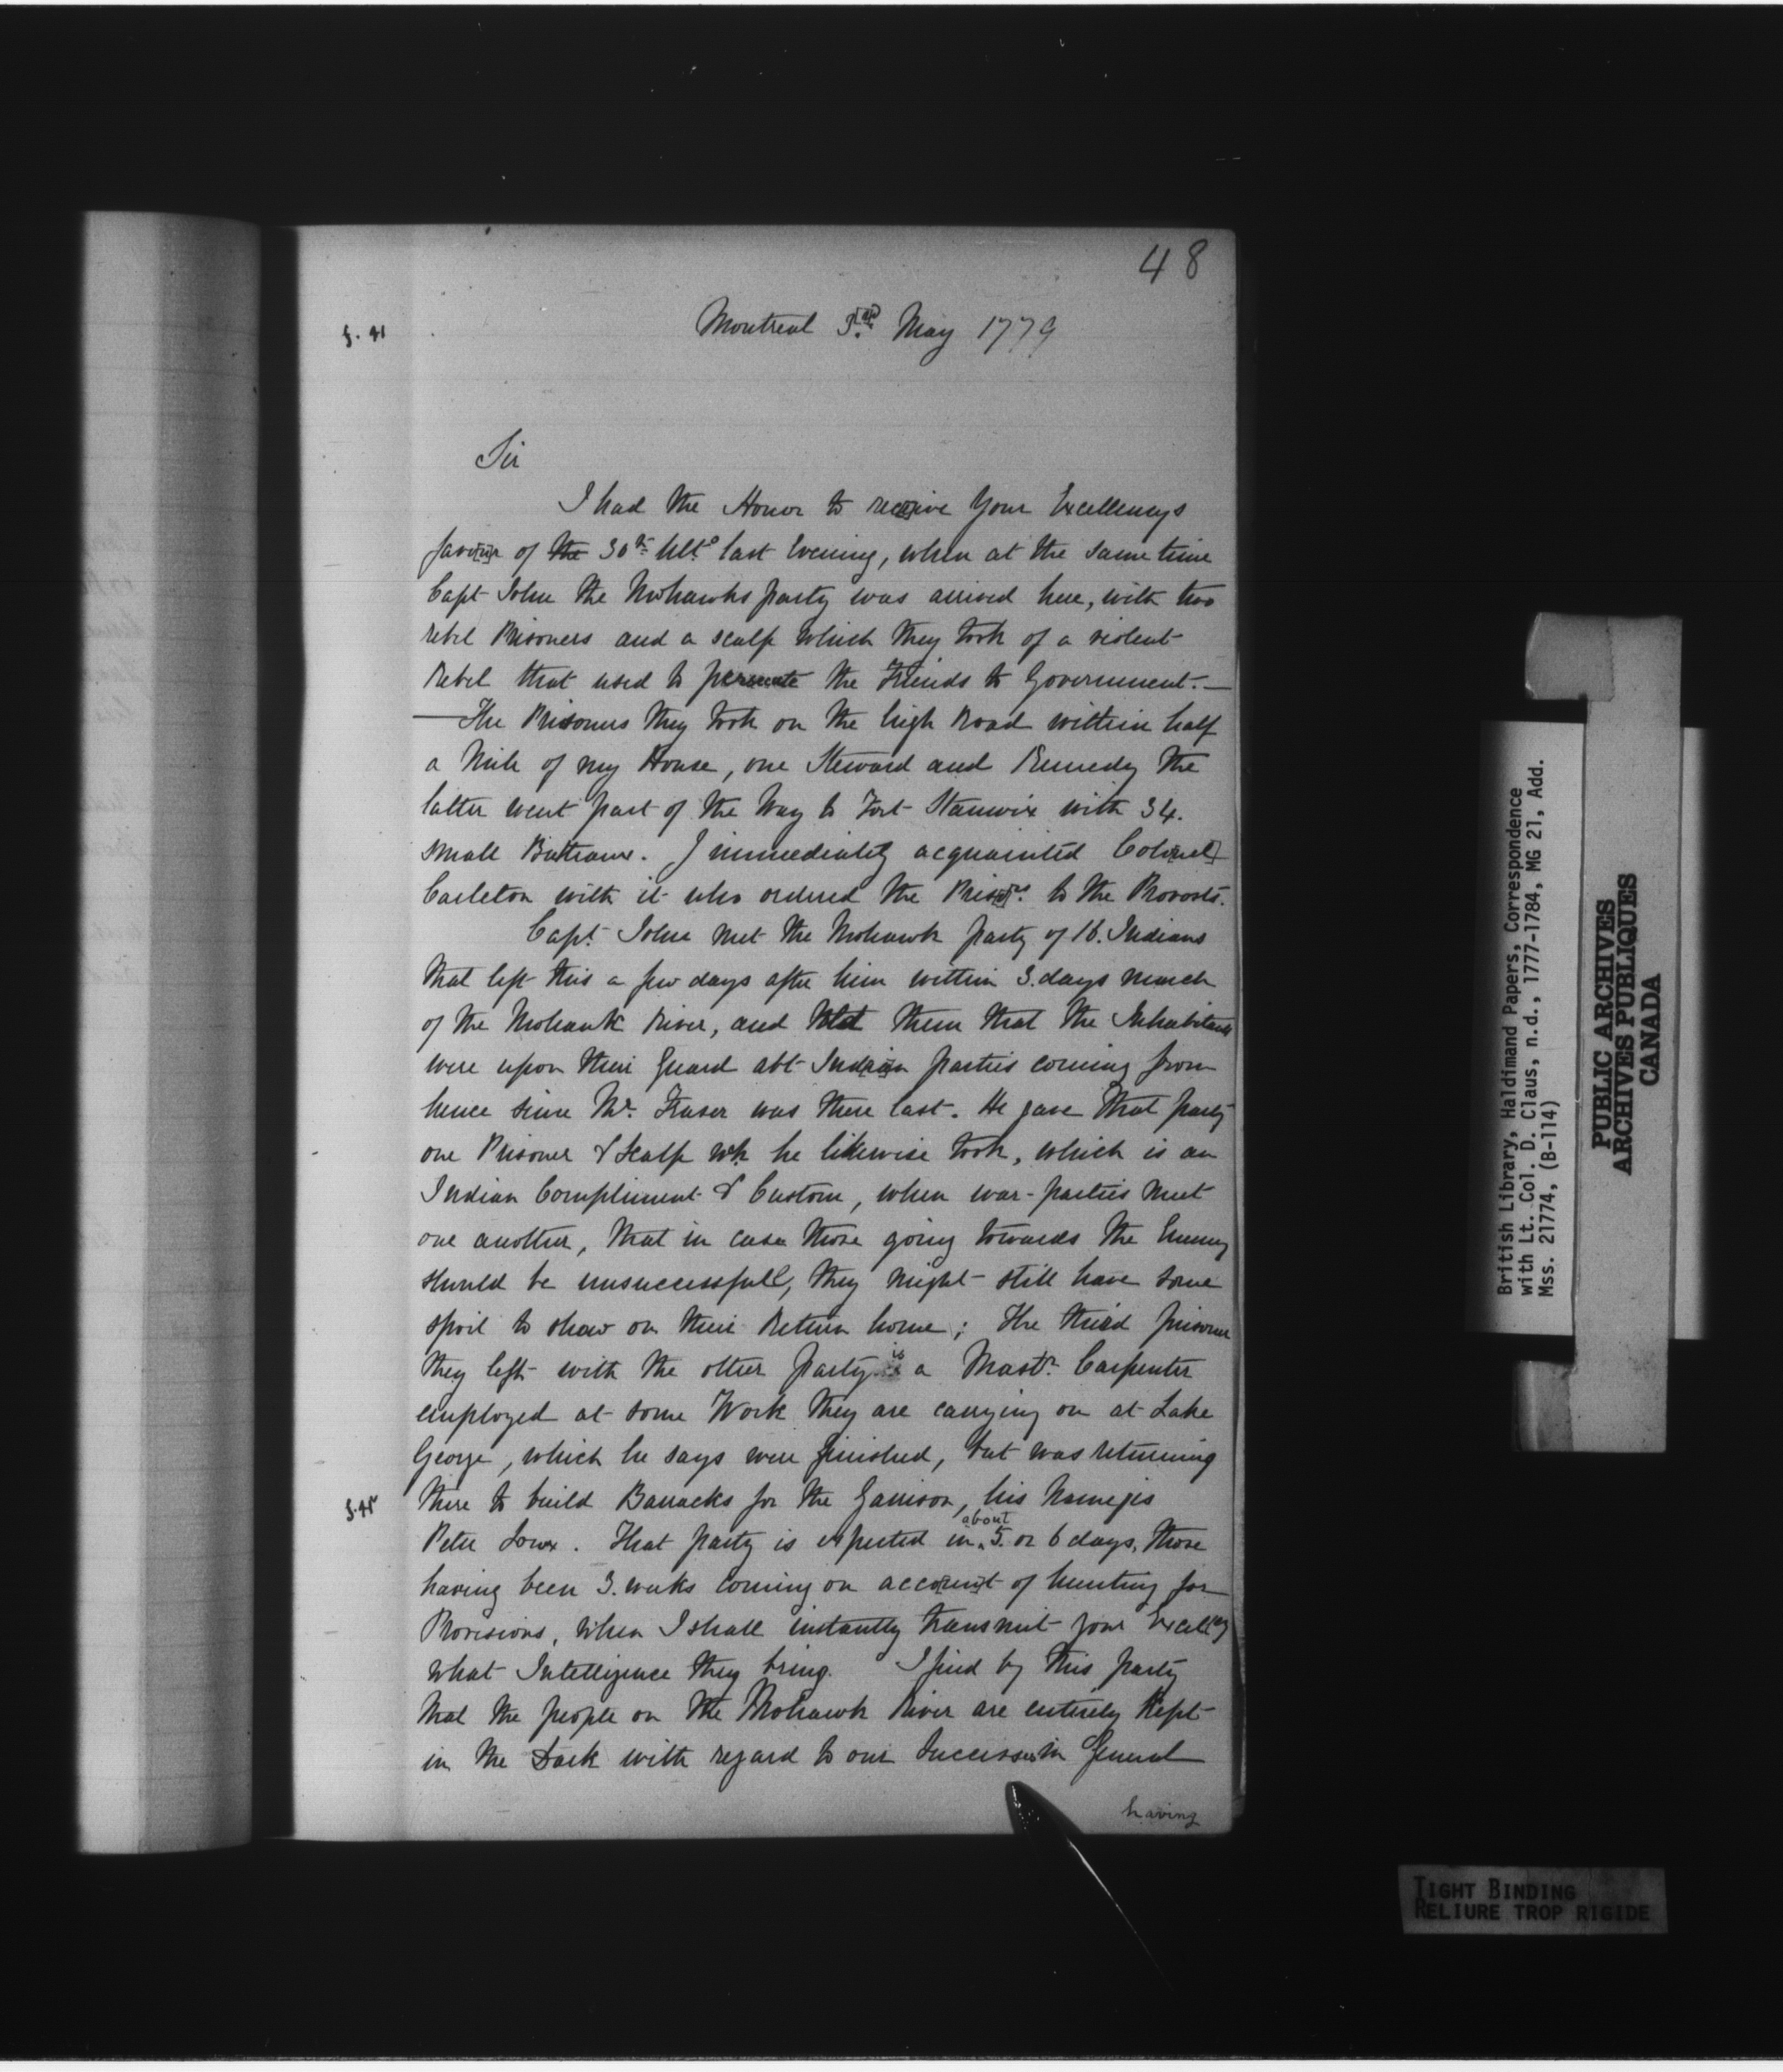 48
Montreal 3rd May 1779
Sir
I had the Honor to receive Your Excellencys
favour of the 30th Ulto last Evening, when at the same time
Capt John the Mohawks party was arrived here, with two
rebel Prisoners and a scalp which they took of a violent
Rebel that used to persecute the Friends to Government.—
—The Prisoners they took on the high Road within half
a Mile of my House, one Steward and Kennedy the
latter went part of the Way to Fort Stanwix with 34.
small Batteaux. I immediately acquainted Colo[nel]
Carleton with it who ordered the Pris[one]rs to the Provosts.
Capt John met the Mohawk party of 16. Indians
that left this a few days after him within 3. days march
of the Mohawk River, and told them that the Inhabitants
were upon their Guard abt Indian parties coming from
hence since Mr. Fraser was there last. He gave that party
one Prisoner & Scalp wh he likewise took, which is an
Indian Compliment & Custom, when war-parties meet
one another, that in case those going towards the Enemy
should be unsuccessfull, they might still have some
spoil to show on their Return home; The third prisoner
they left with the other party is a Mastr. Carpenter
employed at some Work they are carrying on at Lake
George, which he says were finished, but was returning
there to build Barracks for the Garrison, his name is
Peter . That party is expected in about 5. or 6 days, those
having been 3. weeks coming on acco[un]t of hunting for
Provisions, when I shall instantly transmit your Excellcy
what Intelligence they bring. I find by this party
that the people on the Mohawk River are entirely Kept
in the Dark with regard to our Successes in General
having
British Library, Haldimand Papers, Correspondence
with Lt. Col. D. Claus, n.d., 1777-1784, MG 21, Add.
Mss. 21774, (B-114)
PUBLIC ARCHIVES
ARCHIVES PUBLIQUES
CANADA
TIGHT BINDING
RELIURE TROP RIGIDE